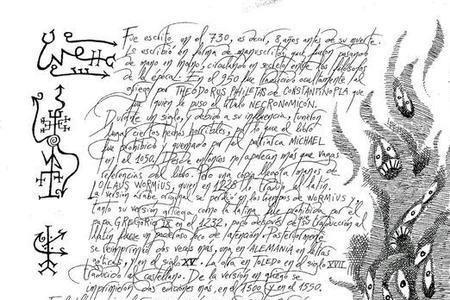 Fue escrito en el 730, es decir, 8 años antes de su muerte.
Lo escribió en forma de manuscritos que fueron pasando
de mano en mano, circulando en secreto entre los filósofos
de la época. En el 950 fue traducido ocultamente al
griego por THEODORUS PHILETAS de CONSTANTINOPLA que
fue quien le puso el título NECRONOMICON.
Durante un siglo, y debido a su influencia, tuvieron
lugar ciertos hechos horribles, por lo que el libro
fue prohibido y quemado por el patriarca MICHAEL
en el 1050. Desde entonces no aparecen más que vagas
referencias del libro. Pero una copia llegó a manos de
OLAUS WORMIUS, quien en 1228 lo tradujo al latín.
La versión árabe original se perdió en los tiempos de WORMIUS y
tanto su versión griega, como la latina, fue prohibida por el
papa GREGORIO IX en el 1232, poco después de su traducción al
latín
se reimprimió dos veces más, una en ALEMANIA en letras
góticas, en el siglo XV. La otra en TOLEDO en el siglo XVII
traducido al castellano. De la versión en griego se
imprimieron dos ediciones más, en el 1500 y en el 1550.